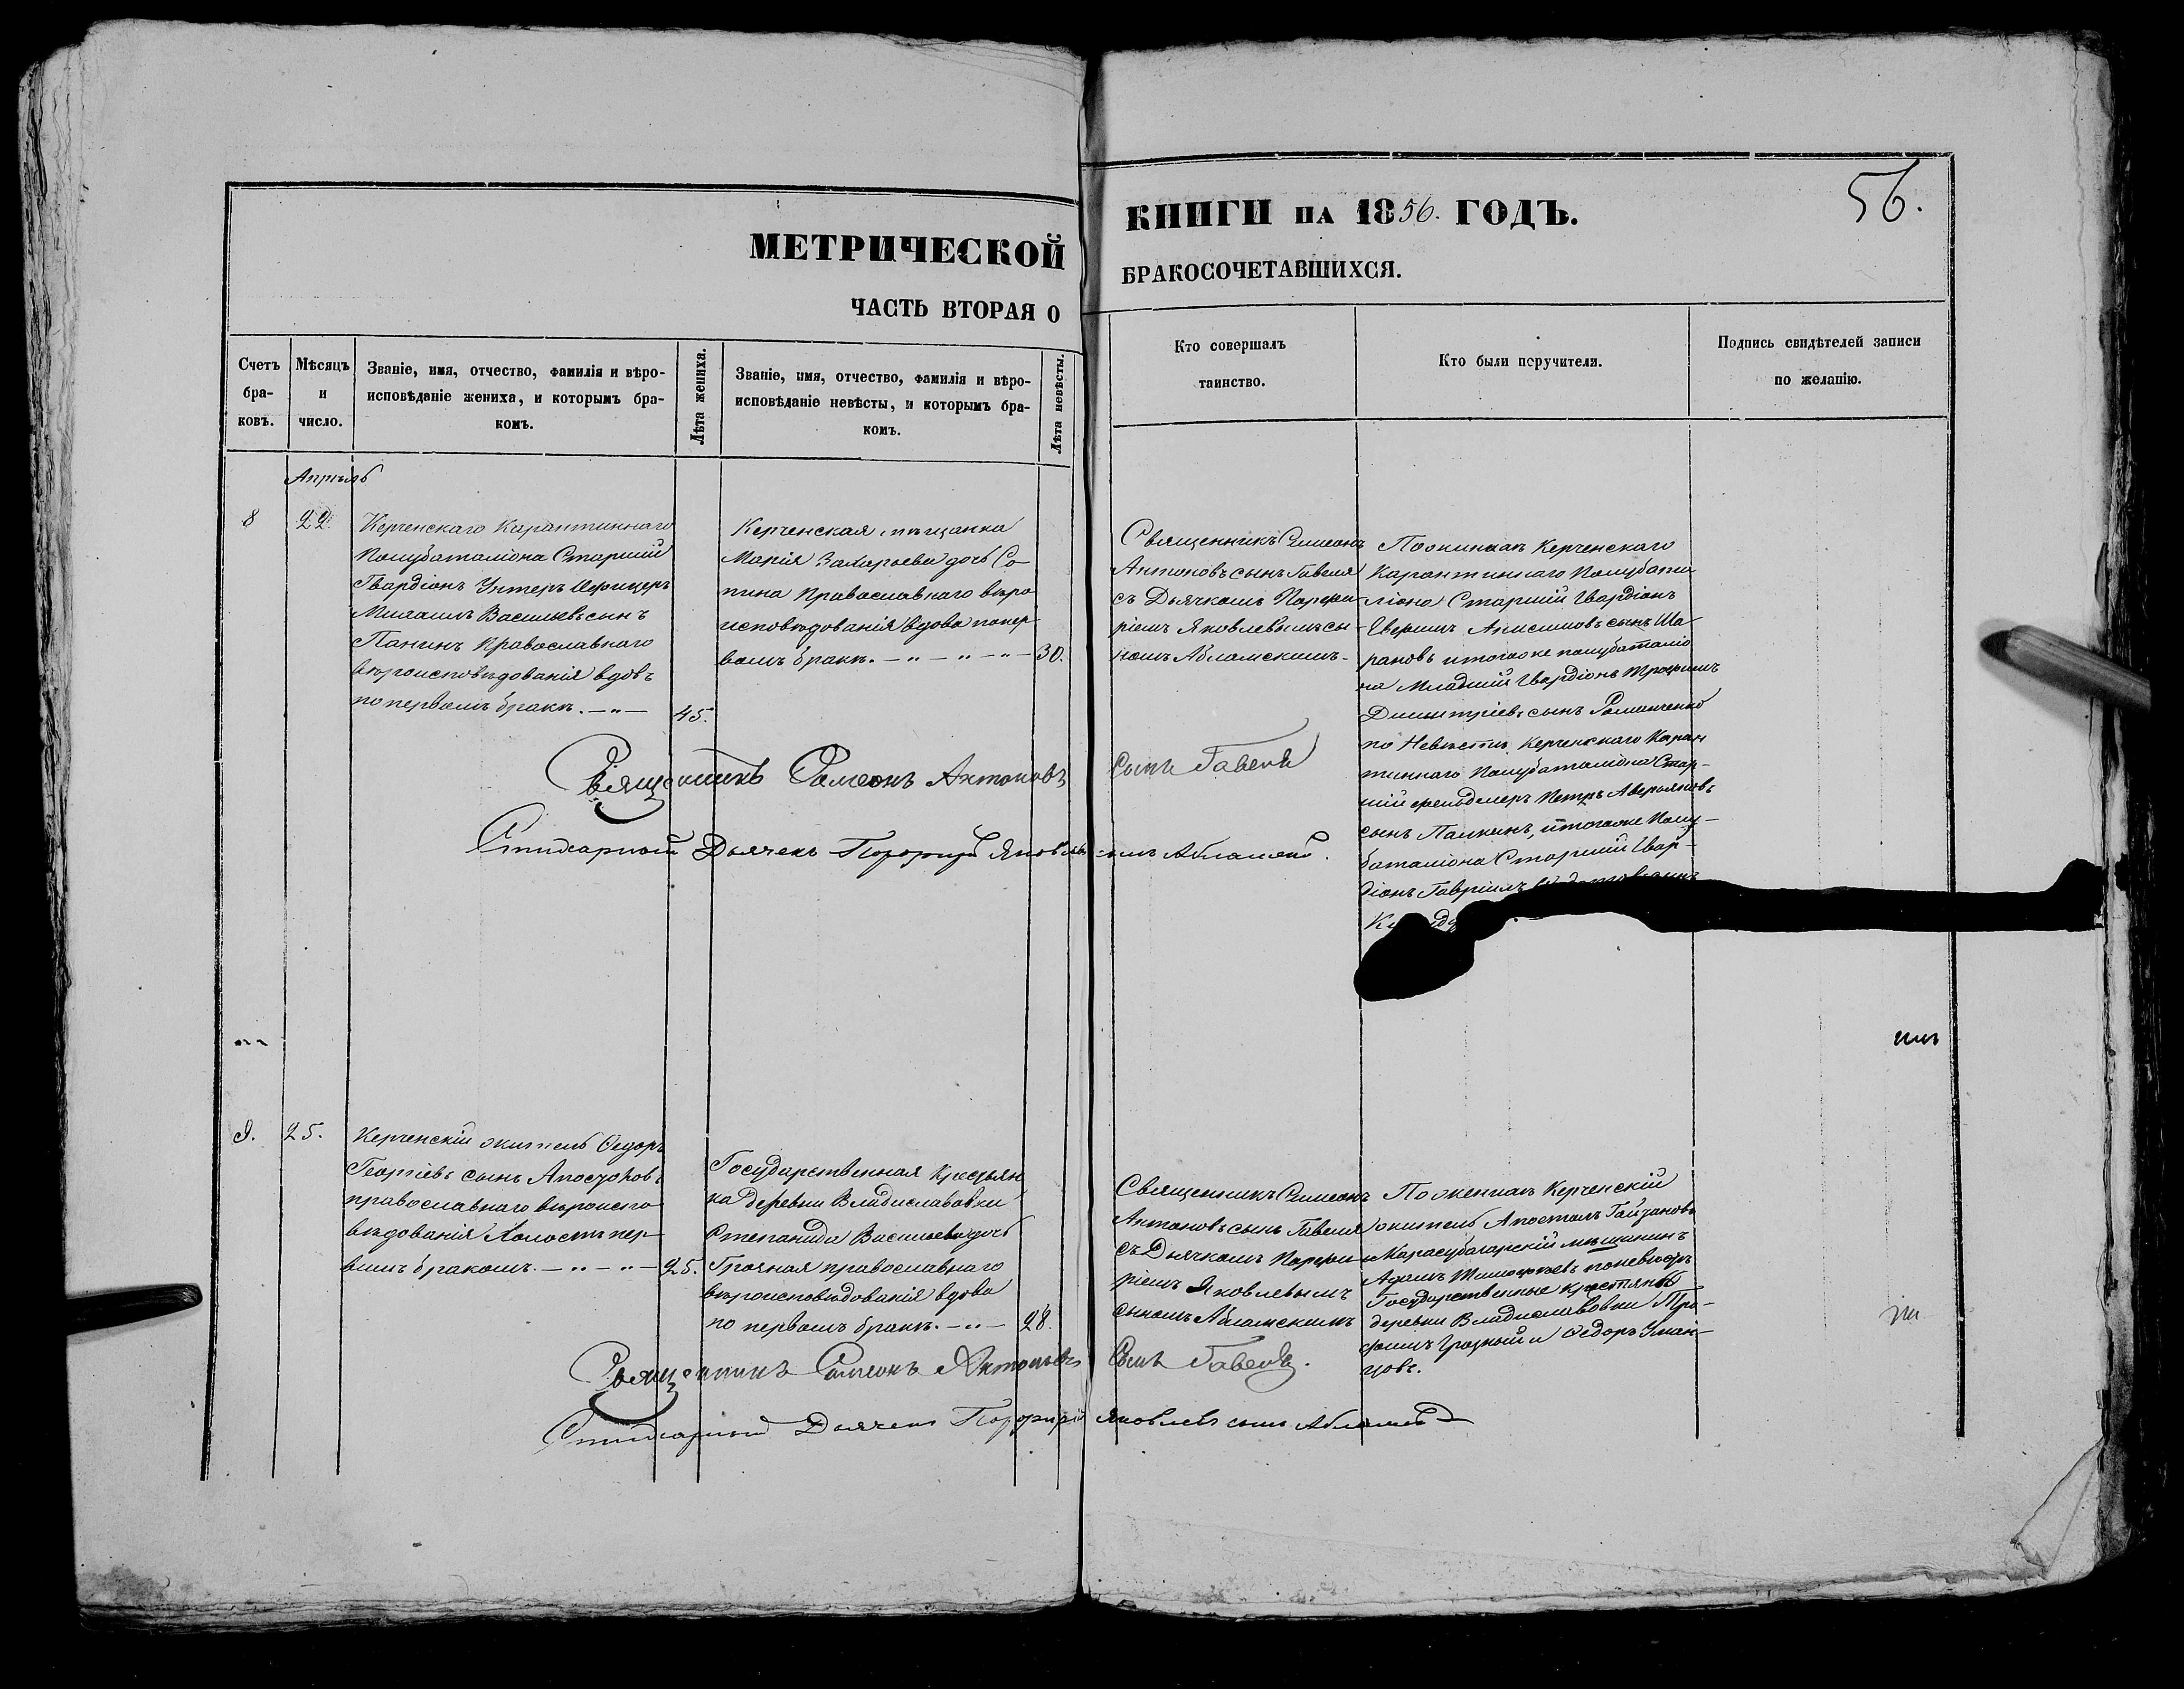 МЕТРИЧЕСКОЙ
ЧАСТЬ ВТОРАЯ О
КНИГИ НА 1856. ГОДЪ.
56.
БРАКОСОЧЕТАВШИХСЯ.
Счетъ
бра-
ковъ.
Мѣсяцъ
и
число.
Званіе, имя, отчество, фамилія и вѣро-
исповѣданіе жениха, и которымъ бра-
комъ.
Лѣта жениха.
Званіе, имя, отчество, фамилія и вѣро-
исповѣданіе невѣсты, и которымъ бра-
комъ.
Лѣта невѣсты.
Кто совершалъ
таинство.
Кто были поручители.
Подпись свидѣтелей записи
по желанію.
Апрѣль
8
22.
Керченскаго Карантиннаго
Полубаталіона Старшій
Гвардіонъ Унтеръ Офицеръ
Васильевъ сынъ
Панинъ Православнаго
вѣроисповѣдованія вдовъ
по первомъ бракѣ.
45.
Керченская мѣщанка
Марія Захарьева дочь Со-
пина Православнаго вѣро
исповѣдованія вдова попер
вомъ бракѣ.
30.
Священникъ Симеонъ
Антоновъ сынъ Гавеля
съ Дьячкомъ Порфи-
ріемъ Яковлевымъ сы-
номъ Абламскимъ-
Керченскаго
Карантиннаго Полубата
ліона Старшій Гвардіонъ
Анисимовъ сынъ Ша-
рановъ итогоже полубаталіо
на Младшій Гвардіонъ Трофимъ
Димитріевъ сынъ Романченко
по Невѣстѣ Керченскаго Каран
тиннаго Полубаталіона Стар-
шій фельдшеръ Петръ Аверьяновъ
сынъ итогоже Полу-
баталіона Старшій Гвар-
діонъ Гавріилъ
Священникъ Симеонъ Антоновъ сынъ Гавеля
Стихарный Дьячекъ Порфирій
9.
25.
Керченскій житель Ѳедоръ
Георгіевъ сынъ
православнаго вѣроиспо
вѣдованія Холостъ пер-
вымъ бракомъ.
25.
Государственная Крестьян
ка деревни Владиславовки
Степанида Васильева дочь
Грозная православнаго
вѣроисповѣдованія вдова
по первомъ бракѣ.
28.
Священникъ Симеонъ
Антоновъ сынъ Гавеля
съ Дьячкомъ Порфи-
ріемъ Яковлевымъ
сыномъ Абламскимъ
Керченскій
житель Апостолъ
и Карасубазарскій мѣщанинъ
Адамъ поневѣстѣ
Государственные крестьяне
деревни Владиславовки Тро-
фимъ Грозный и Ѳедоръ Уман-
цовъ.
Священникъ Симеонъ Антоновъ Сынъ Гавеля.
Стихарный Дьячекъ Порфирій Яковлевъ сынъ